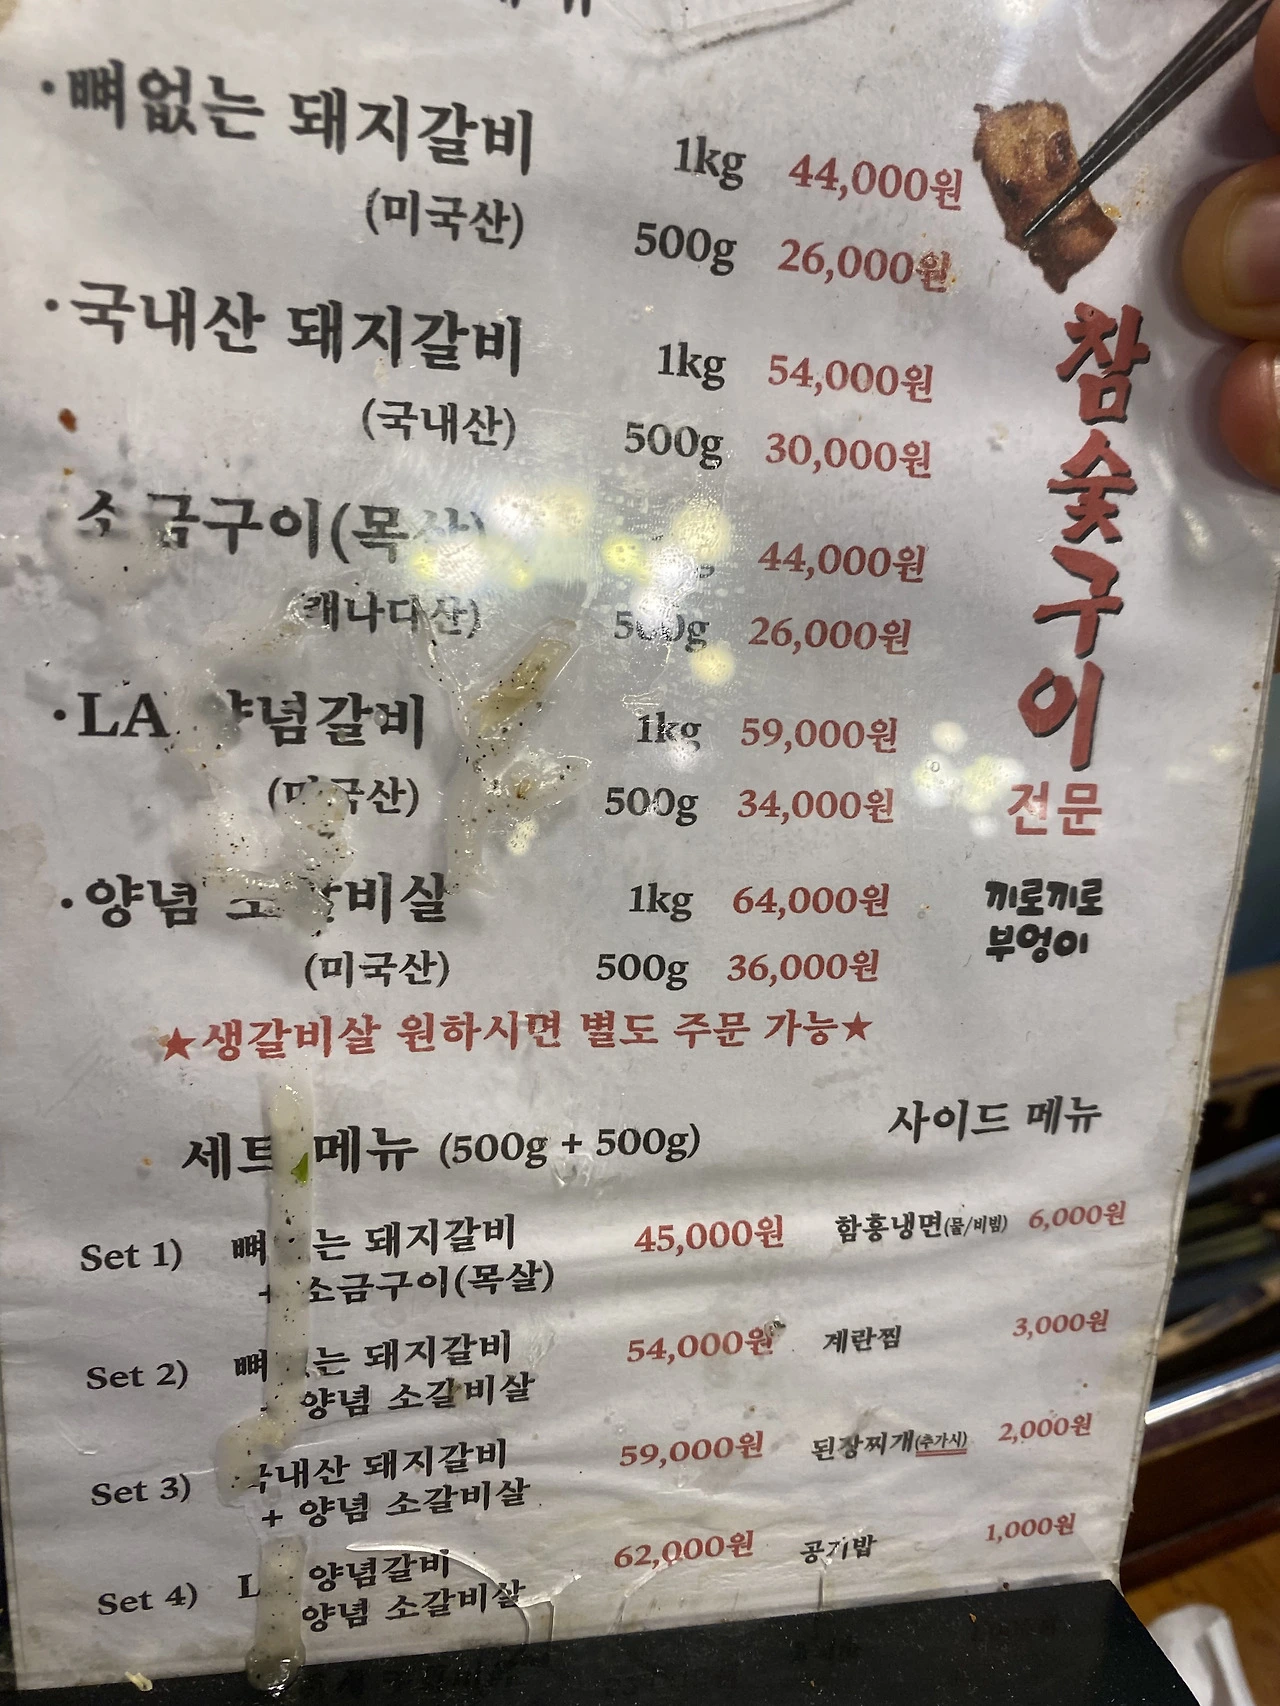 ·뼈없는 돼지갈비 1kg 44,000원
(미국산) 500g 26,000원
·국내산 돼지갈비 1kg 54,000원
(국내산) 500g 30,000원
소금구이(목살) 44,000원
(캐나다산) 500g 26,000원
·LA 양념갈비 1kg 59,000원
(미국산) 500g 34,000원
·양념 소갈비살 1kg 64,000원
(미국산) 500g 36,000원
★생갈비살 원하시면 별도 주문 가능★
참숯구이
전문
끼로끼로
부엉이
세트 메뉴 (500g + 500g)
Set 1) 뼈없는 돼지갈비 45,000원
+ 소금구이(목살)
Set 2) 뼈없는 돼지갈비 54,000원
양념 소갈비살
Set 3) 국내산 돼지갈비 59,000원
+ 양념 소갈비살
Set 4) LA 양념갈비 62,000원
양념 소갈비살
사이드 메뉴
함흥냉면(물/비빔) 6,000원
계란찜 3,000원
된장찌개(추가시) 2,000원
공기밥 1,000원